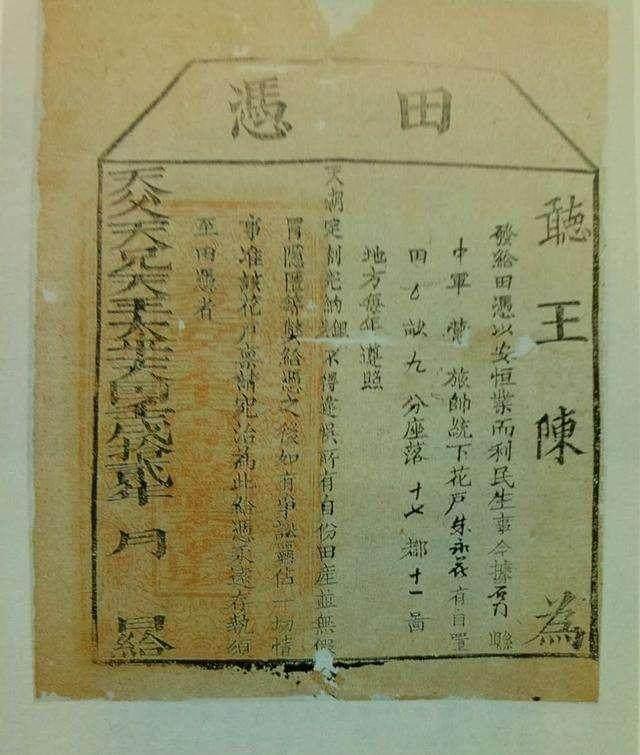 田憑
聽王陳為
發給田憑以安恒業而利民生事今據縣
中軍營旅帥統下花戶朱永有自置
田畝九分座落十七都十一啚
地方每年遵照
天朝定制完納不得違誤所有自份田產並無假
冒隱匿等弊給憑之後如有爭訟霸佔一切情
事准該花戶稟請究治為此給憑永遠存執須
至田憑者
天父天兄天王太平天國壬戌拾貳年 月 日給